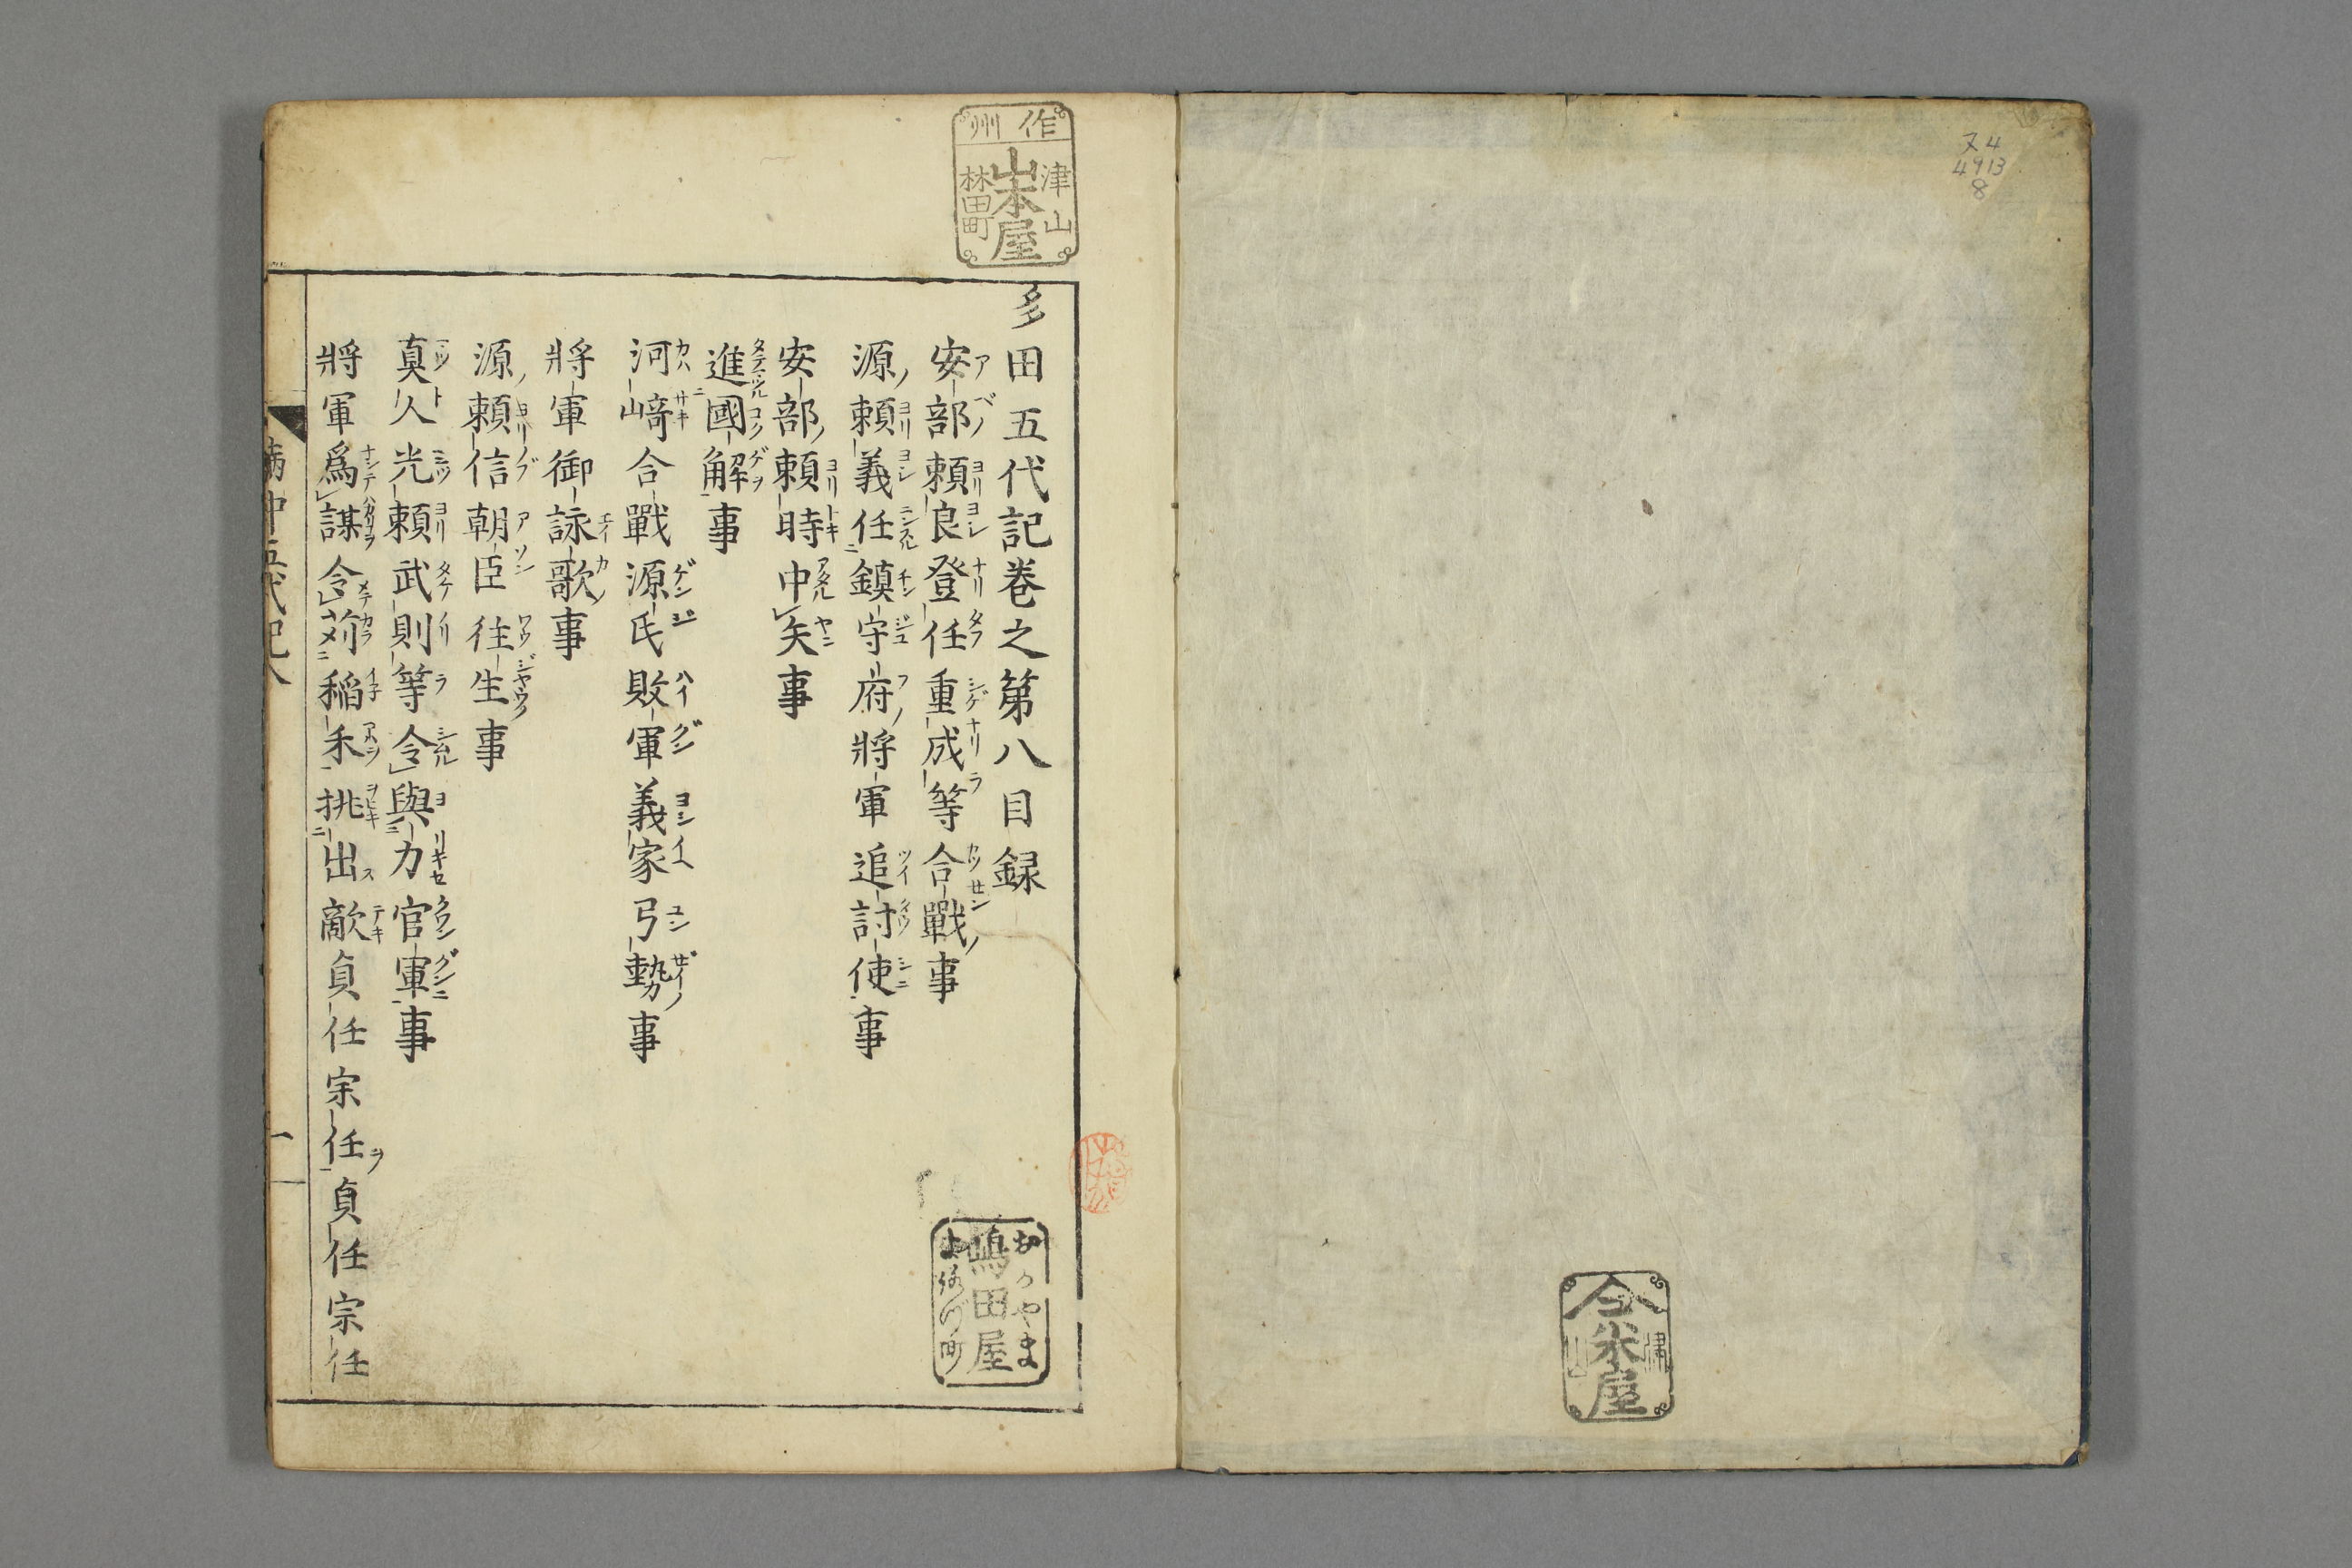 又4
4913
8
今米屋
津山
作州
津山
山本屋
林田町
多田五代記巻之第八目録
安部頼良登任重成等合戰事
源頼義任鎮守府將軍追討使事
安部頼時中矢事
進國解事
河﨑合戰源氏敗軍義家弓勢事
將軍御詠歌事
源頼信朝臣往生事
真人光頼武則等令與力官軍事
將軍爲謀令苅稲禾挑出敵貞任宗任貞任宗任
おかやま
嶋田屋
満中五代記八
一